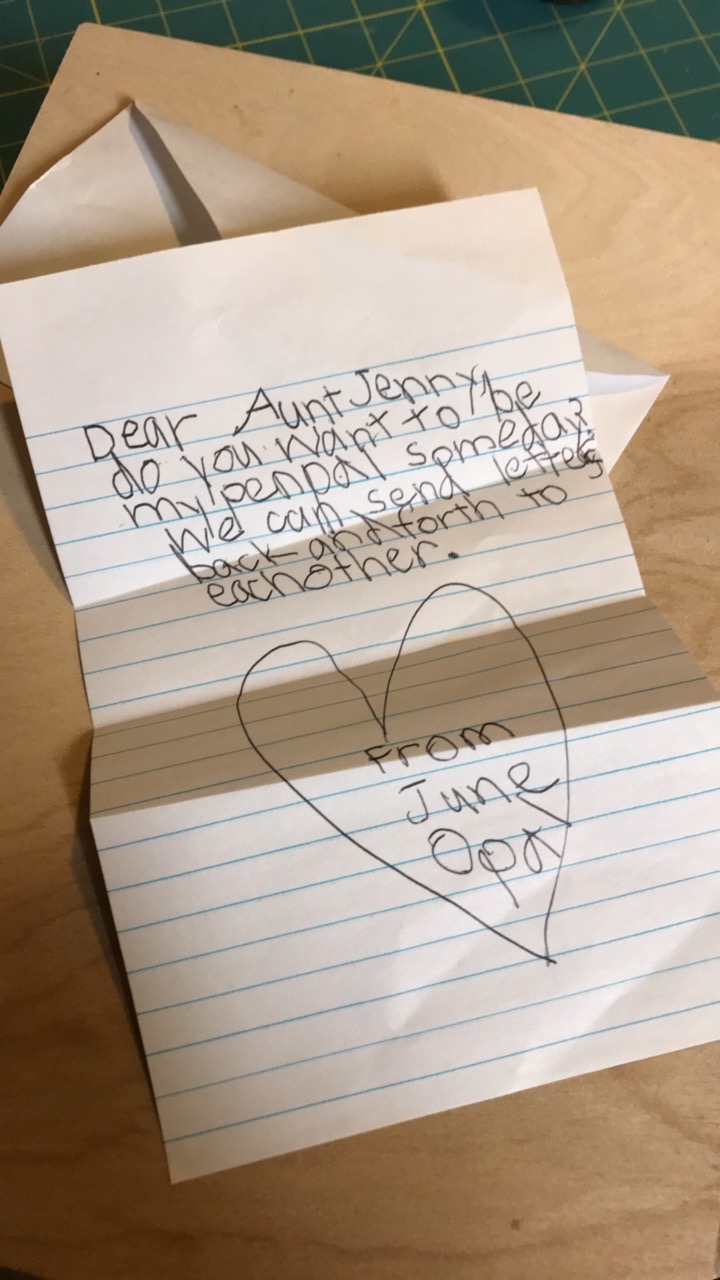 Dear Aunt Jenny,
do you want to be
my penpal someday?
We can send letters
back and forth to
eachother.
From
June
Opa